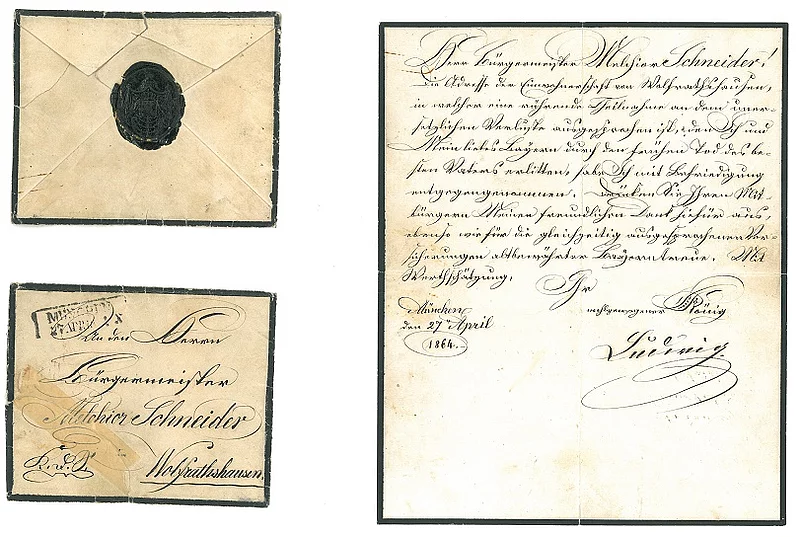 MÜNCHEN
27 APRIL
An den Herrn
Bürgermeister
Melchior Schneider
Wolfrathshausen.
Herr Bürgermeister Melchior Schneider!
Die Adresse der Einwohnerschaft von Wolfrathshausen,
in welcher eine rührende Theilnahme an dem uner-
setzlichen Verluste ausgesprochen ist, den Ich und
Mein liebes Bayern durch den frühen Tod des be-
sten Vaters erlitten, habe Ich mit Befriedigung
entgegengenommen. Drücken Sie Ihren Mit-
bürgern Meinen freundlichen Dank hiefür aus,
ebenso wie für die gleichzeitig ausgesprochenen Ver-
sicherungen altbewährter Bayerntreue. Mit
Werthschätzung.
Ihr
wohlgewogener König
München
den 27. April
1864.
Ludwig.